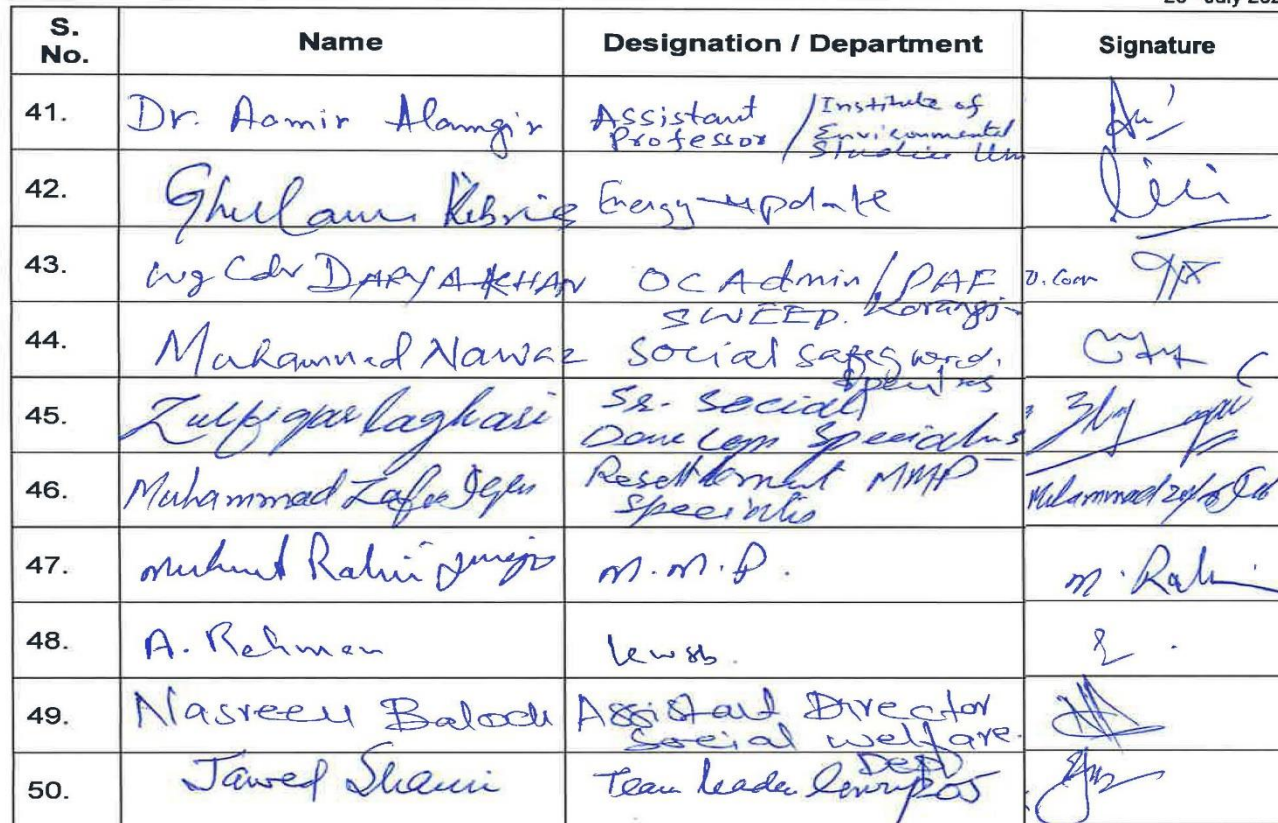 July 202
S. No. Name Designation / Department Signature
41. Dr. Aamir Alamgir Assistant Professor / Institute of Environmental Studies
42. Ghulam Energy update
43. Wg Cdr DARYA KHAN OC Admin / PAF Korangi
44. Muhammad Nawaz SWEEP. Social Safeguard
45. Zulfiqar Laghari Sr. Social Specialis
46. Muhammad Zafar Resettlement MMP Muhammad
47. Rahim Junejo M.M.P. M. Rahi
48. A. Rehman kwsb.
49. Nasreen Baloch Assistant Director Social welfare Dept
50. Jawed Team leader